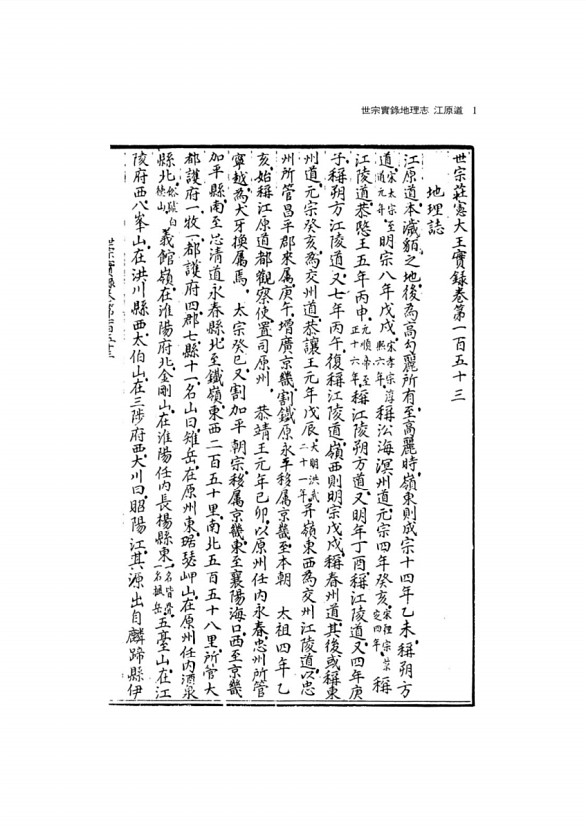 世宗實錄地理志 江原道 1
世宗莊憲大王實錄卷第一百五十三
地理誌
江原道本濊貊之地後為高勾麗所有至高麗時嶺東則成宗十四年乙未稱朔方
道宋太宗至道元年至明宗八年戊戌宋孝宗淳熙六年稱沿海溟州道元宗四年癸亥宋理宗景定四年稱
江陵道恭愍王五年丙申元順帝至正十六年稱江陵朔方道又明年丁酉稱江陵道又四年庚
子稱朔方江陵道又七年丙午復稱江陵道嶺西則明宗戊戌稱春州道其後或稱東
州道元宗癸亥為交州道恭讓王元年戊辰大明洪武二十一年并嶺東西為交州江陵道以忠
州所管昌平郡來屬庚午增廣京畿割鐵原永平移屬京畿至本朝 太祖四年乙
亥始稱江原道都觀察使置司原州 恭靖王元年己卯以原州任內永春忠州所管
寧越為犬牙換屬焉 太宗癸巳又割加平朝宗移屬京畿東至襄陽海口西至京畿
加平縣南至忠清道永春縣北至鐵嶺東西二百五十里南北五百五十八里所管大
都護府一牧一都護府四郡七縣十一名山曰雉岳在原州東琚瑟岬山在原州任內酒泉
縣北義館嶺在淮陽府北金剛山在淮陽任內長楊縣東一名皆骨一名楓岳五臺山在江
陵府西八峯山在洪川縣西太伯山在三陟府西大川曰昭陽江其源出自麟蹄縣伊